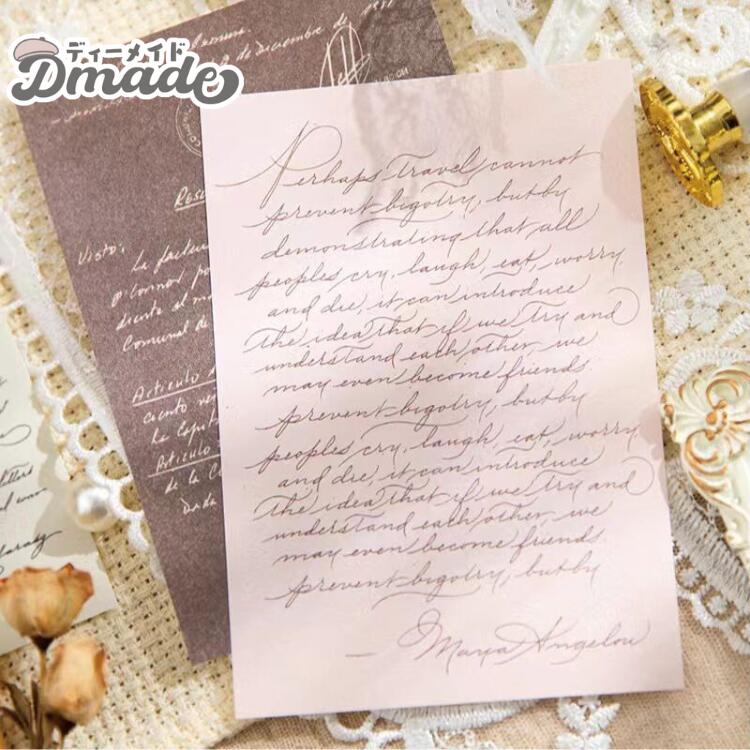 ディーメイド
Dmade
Diciembre de
Visto:
La factura
O'Connor, po
diente al m
Comunal de
Articulo
cuento ve
La Capit
Articulo
de la Co
Dada
Perhaps travel cannot
prevent bigotry, but by
demonstrating that all
peoples cry, laugh, eat, worry,
and die, it can introduce
the idea that if we try and
understand each other, we
may even become friends.
prevent bigotry, but by
peoples cry, laugh, eat, worry,
and die, it can introduce
the idea that if we try and
understand each other, we
may even become friends.
prevent bigotry, but by
— Maya Angelou